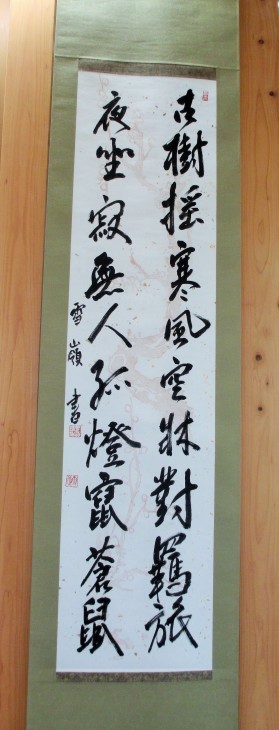 古樹揺寒風空牀對羈旅
夜坐寂無人孤燈竄蒼鼠
雪嶺書